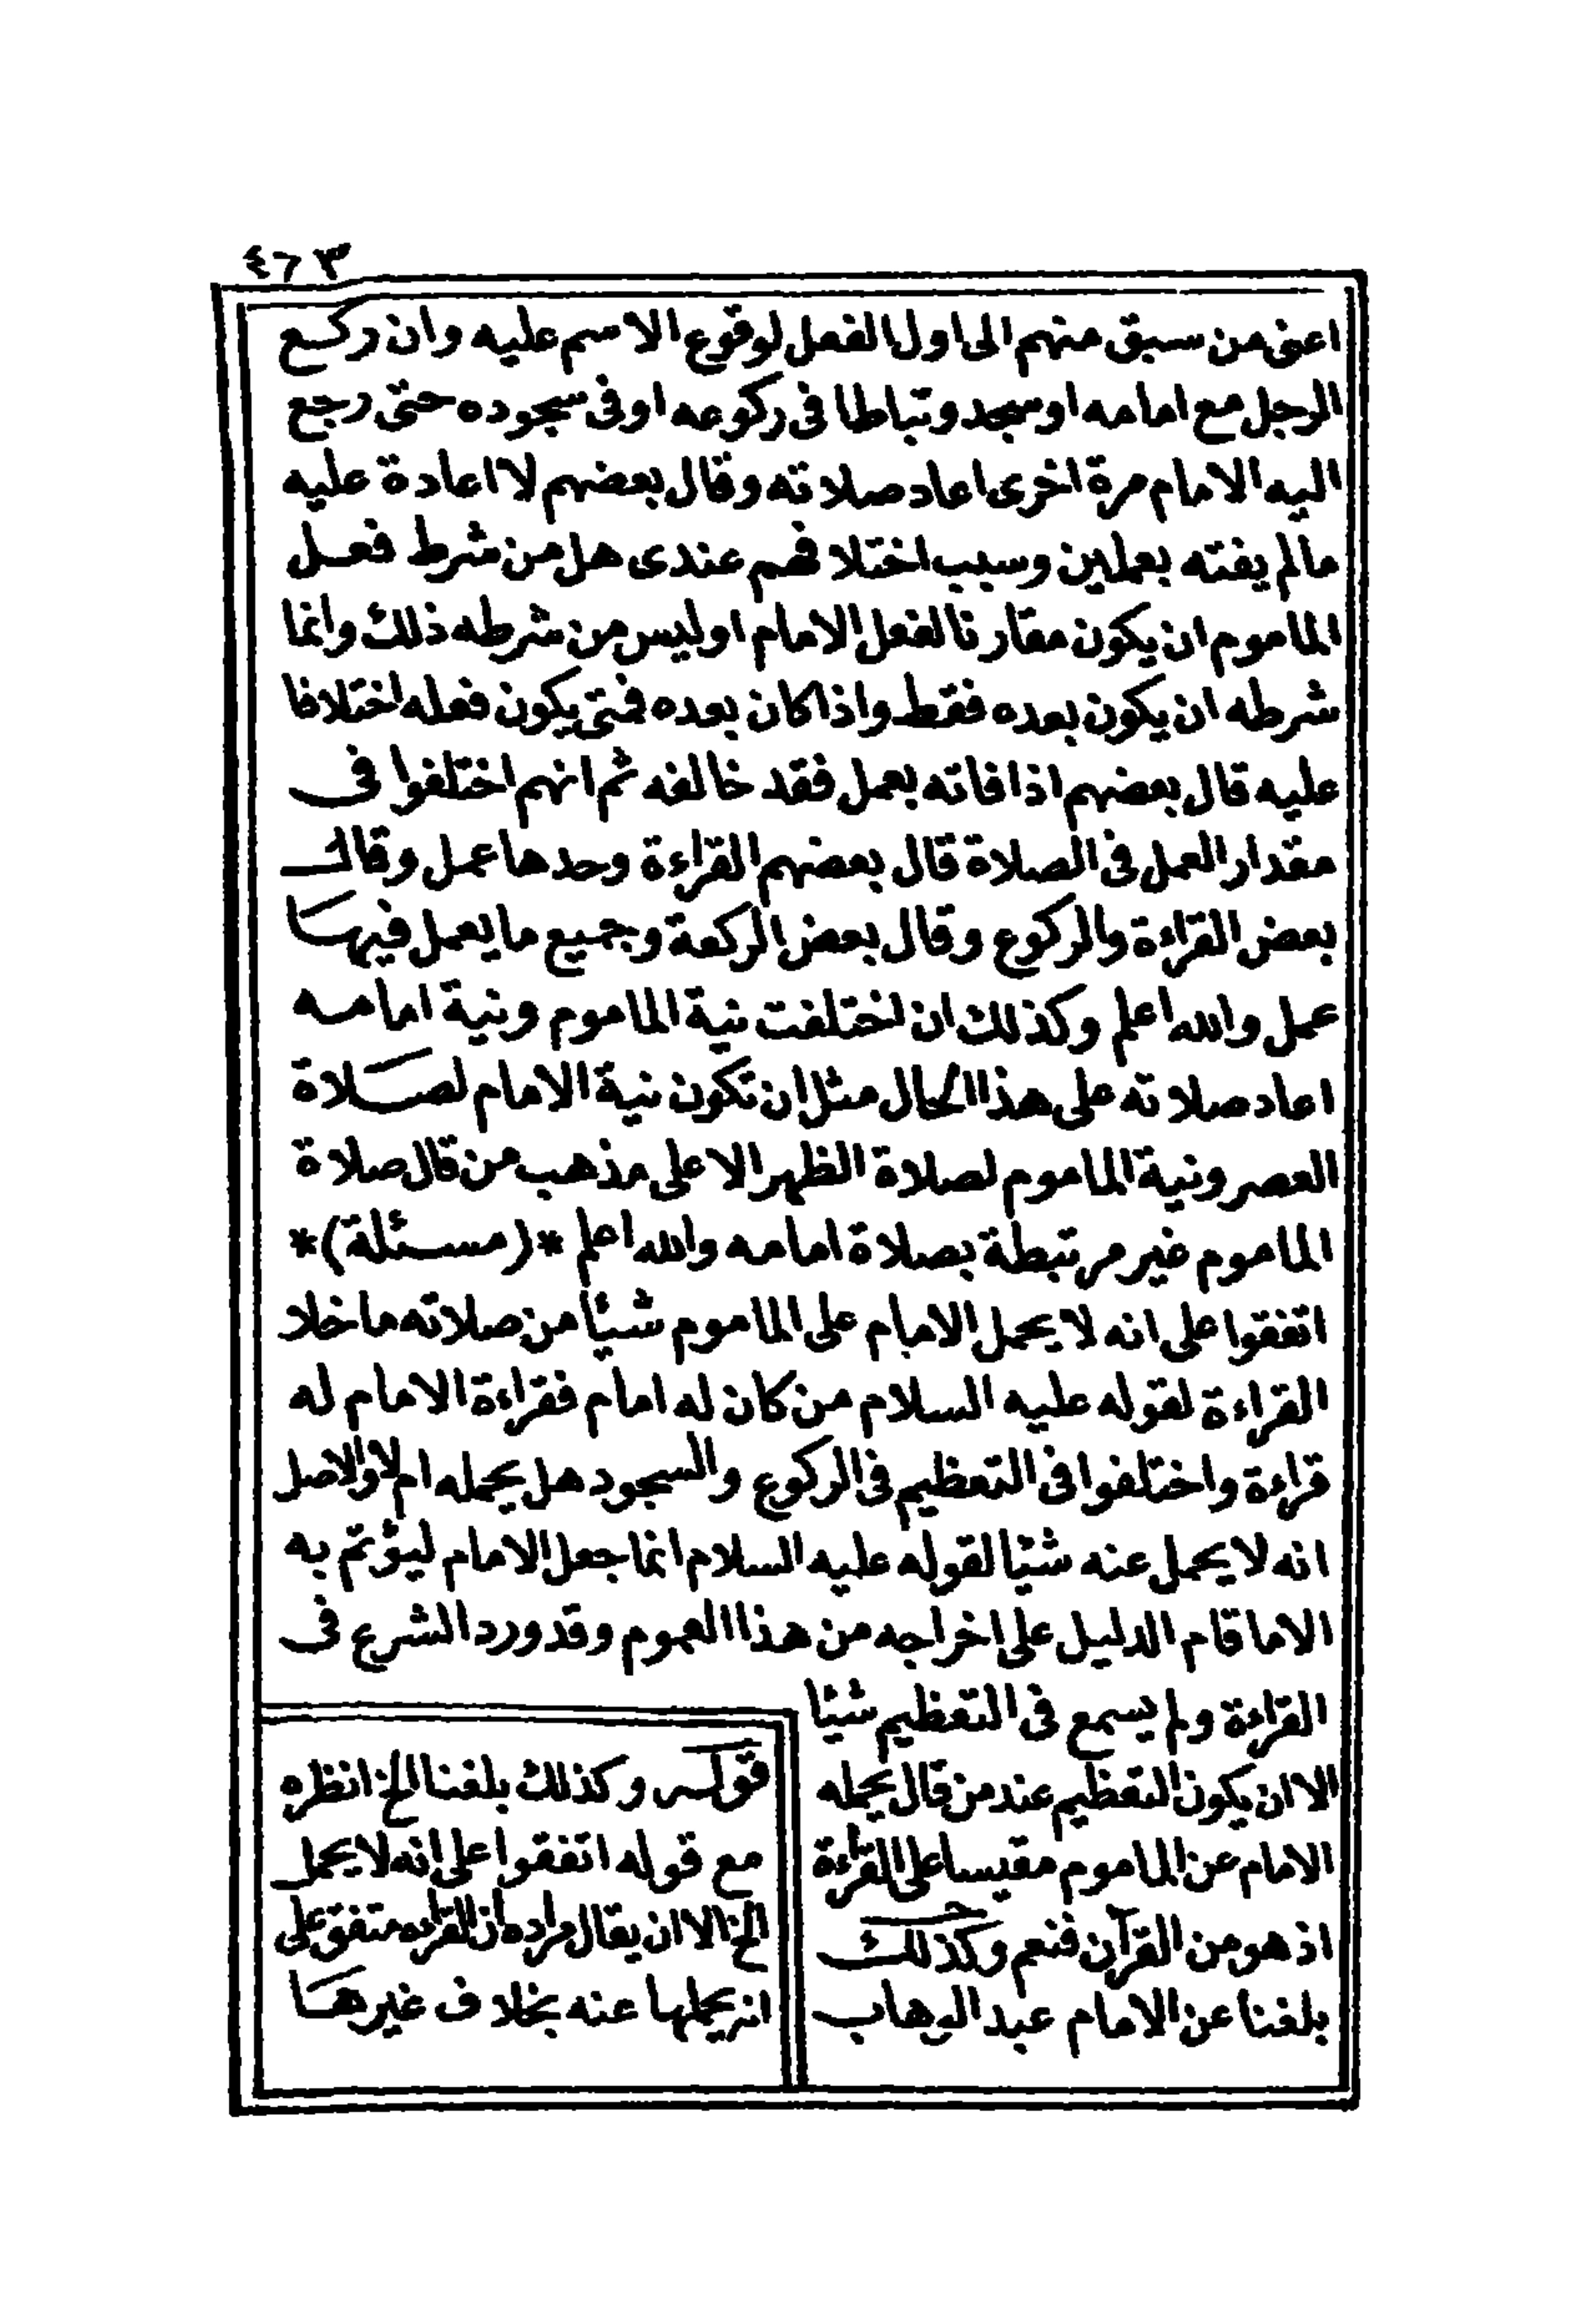 ٤٦٣
اعنى من سبق منهم الى اول الفعل لوقوع الاسم عليه وان ركع
الرجل مع امامه او سجد وتباطا فى ركوعه او فى سجوده حتى رجع
اليه الامام مرة اخرى اعاد صلاته وقال بعضهم لا اعادة عليه
مالم يفته بعملين وسبب اختلافهم عندى هل من شرط فعل
الماموم ان يكون مقارنا لفعل الامام او ليس من شرطه ذلك وانما
شرطه ان يكون بعده فقط واذا كان بعده فمتى يكون فعله اختلافا
عليه قال بعضهم اذا فاته بعمل فقد خالفه ثم انهم اختلفوا فى
مقدار العمل فى الصلاة قال بعضهم القراءة وحدها عمل وقال
بعض القراءة والركوع وقال بعض الركعة وجميع ما يعمل فيها
عمل والله اعلم وكذلك ان اختلفت نية الماموم ونية امامه
اعاد صلاته على هذا الحال مثل ان تكون نية الامام لصلاة
العصر ونية الماموم لصلاة الظهر الا على مذهب من قال صلاة
الماموم غير مرتبطة بصلاة امامه والله اعلم *(مسئلة)*
اتفقوا على انه لا يحمل الامام على الماموم شيئا من صلاته ما خلا
القراءة لقوله عليه السلام من كان له امام فقراءة الامام له
قراءة واختلفوا فى التعظيم فى الركوع والسجود هل يحمله ام لا والاصل
انه لا يحمل عنه شيئا لقوله عليه السلام انما جعل الامام ليؤتم به
الا ما قام الدليل على اخراجه من هذا العموم وقد ورد الشرع فى
القراءة ولم يسمع فى التعظيم شيئا
الا ان يكون التعظيم عند من قال يحمله
الامام عن الماموم مقيسا على القراءة
اذ هو من القرآن فنعم وكذلك
بلغنا عن الامام عبد الوهاب
قوله وكذلك بلغنا الخ انظره
مع قوله اتفقوا على انه لا يحمل
الخ الا ان يقال مراده أن القراءه متفق على
انه يحملها عنه بخلاف غيرها